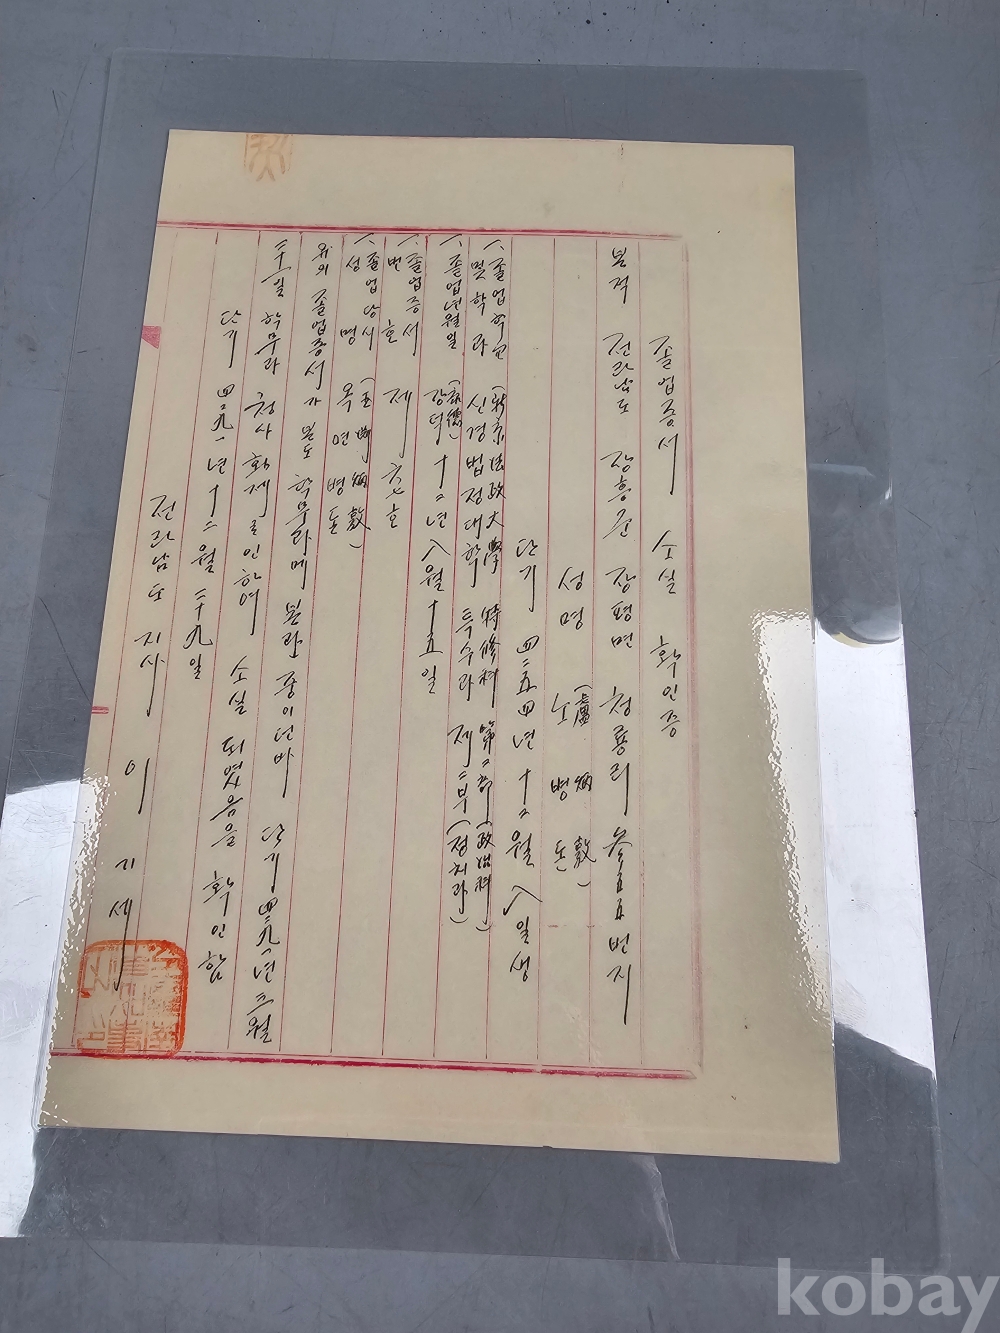 졸업증서 소실 확인증
본적 전라남도 장흥군 장평면 청룡리 参五五번지
성명 노병돈
(盧炳敦)
단기 四二五四년 十二월 八일생
一、졸업학교 (新京法政大學 特修科 第二部(政治科)
및학과 신경법정대학 특수과 제二부(정치과)
一、졸업년월일 (康德)강덕 十二년 八월 十五일
一、졸업증서
번호 제六七호
一、졸업당시 (玉岡炳敦)
성명 옥연병돈
우의 졸업증서가 본도 학무과에 보관중이던바 단기 四二九一년 三월
二十一일 학무과 청사 화재로 인하여 소실 되였음을 확인함
단기 四二九一년 十二월 二十九일
전라남도 지사 이기세
kobay